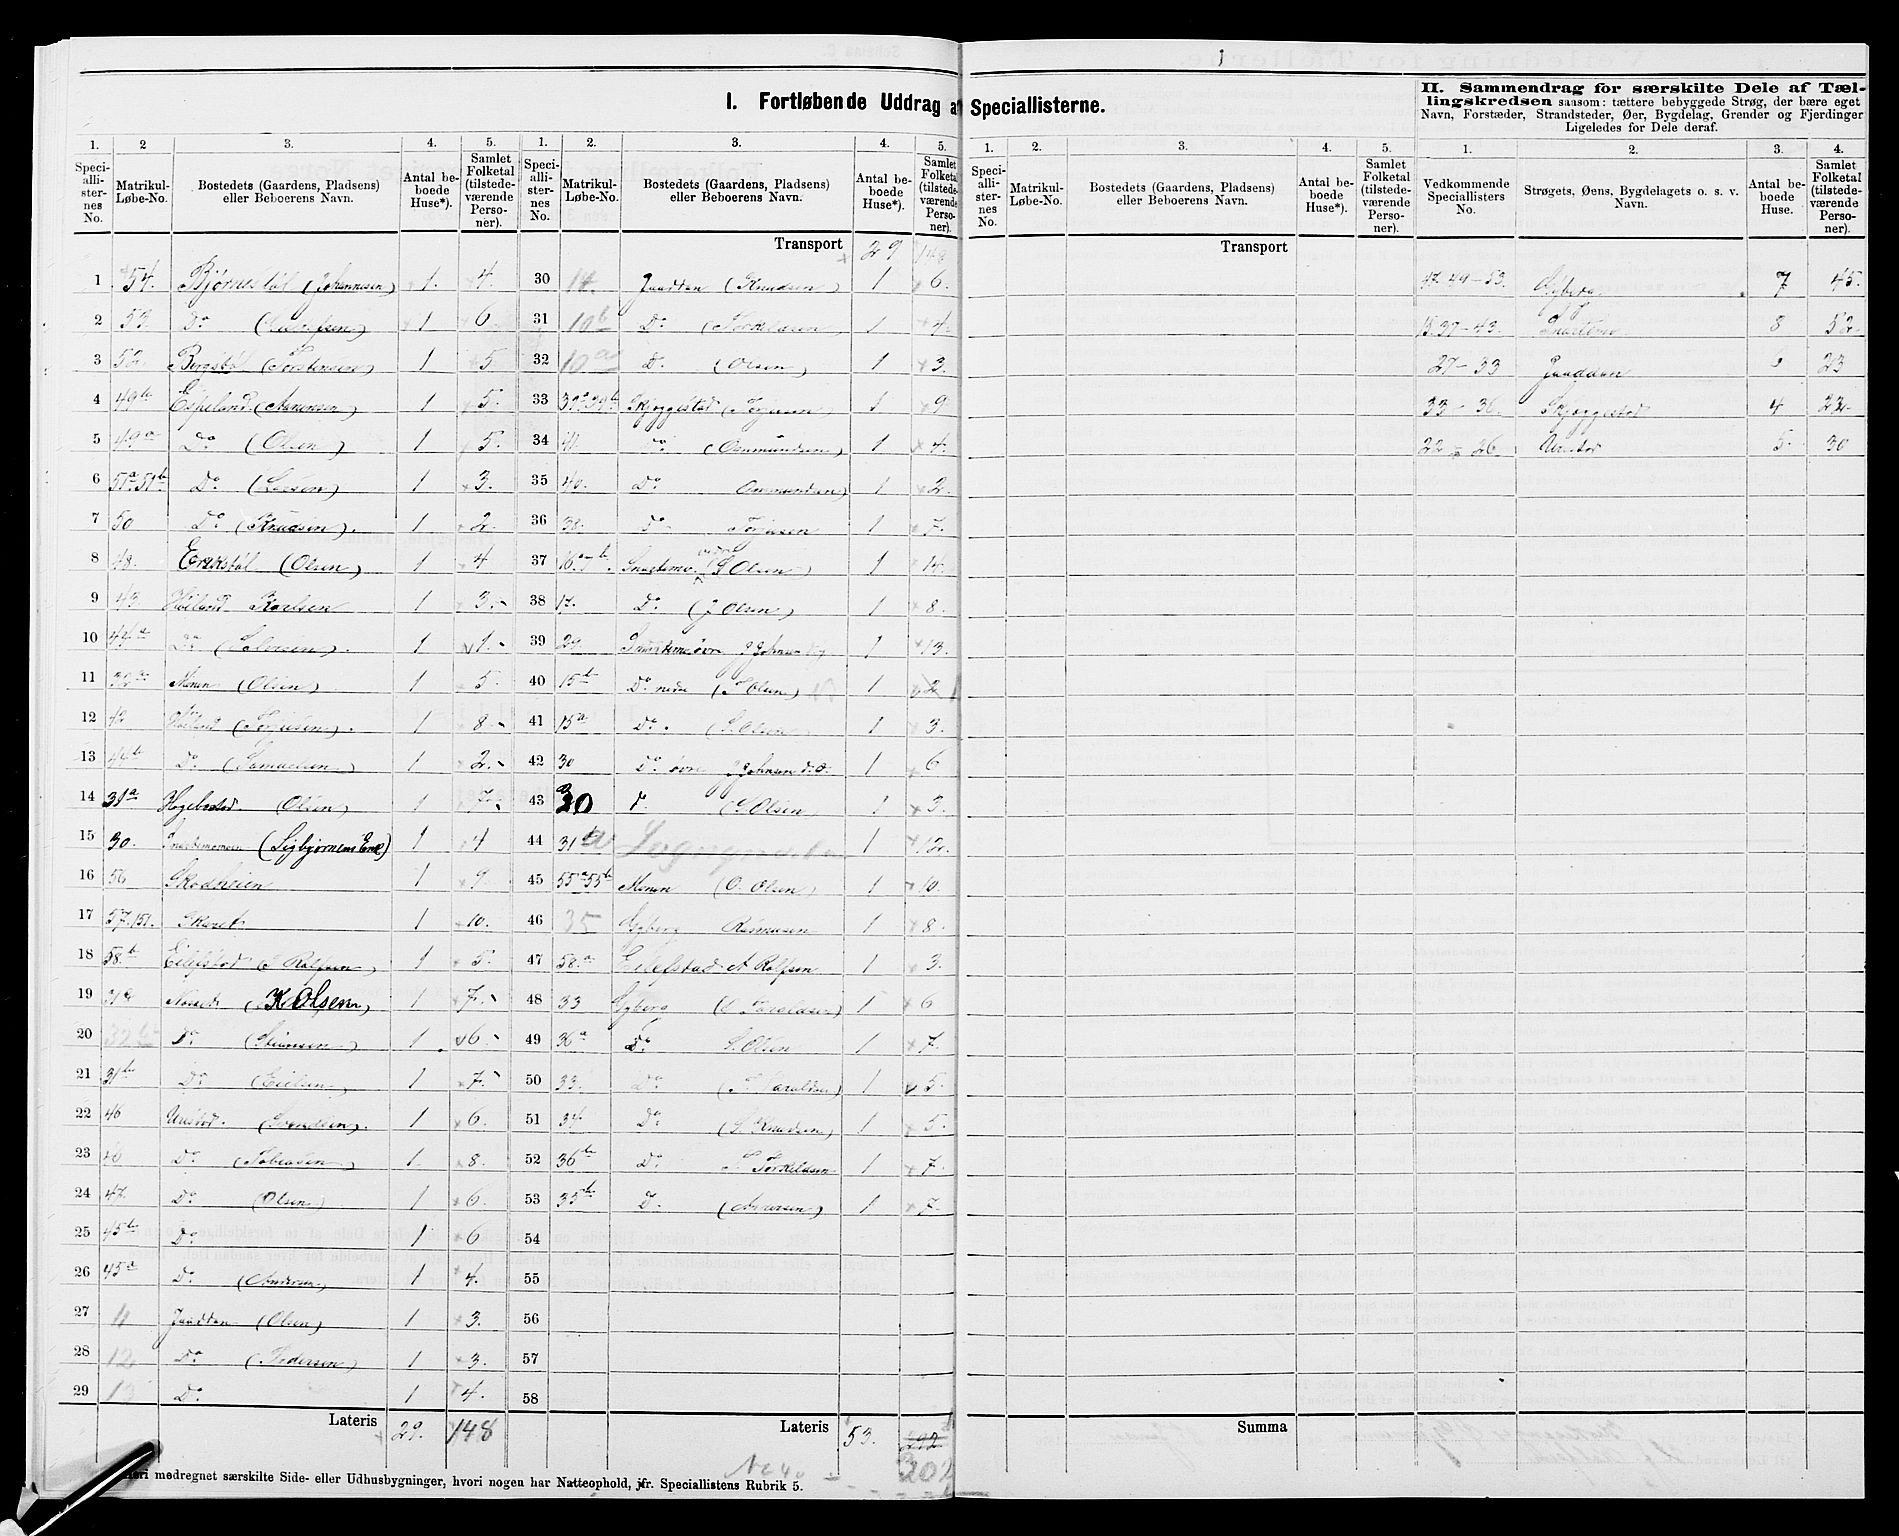 I. Fortløbende Uddrag af Speciallisterne.
II. Sammendrag for særskilte Dele af Tæl-
lingskredsen saasom: tættere bebyggede Strøg, der bære eget
Navn, Forstæder, Strandsteder, Øer, Bygdelag, Grender og Fjerdinger
Ligeledes for Dele deraf.
1. 2 3. 4. 5.
Speciallisternes No. Matrikul-Løbe-No. Bostedets (Gaardens, Pladsens) eller Beboerens Navn. Antal beboede Huse*). Samlet Folketal (tilstedeværende Personer).
1 54. Bjørnestøl (Johannesen) 1. 4.
2 53. Do 1 6.
3 52. Bergstøl (Torstensen) 1 5.
4 49b Espeland (Asmonsen) 1 5.
5 49a Do (Olsen) 1 5.
6 51a 51b Do 1 3.
7 50 Do (Knudsen). 1 2.
8 48. Erekstøl (Olsen) 1 4
9 43 Høiland Karlsen 1 3.
10 44a Do 1 1.
11 Monen (Olsen) 1 5.
12 42 Høiland (Torjusen). 1 8.
13 44b Do. (Samuelsen) 1 2.
14 31a Hægebostad (Olsen) 1 7.
15 30. Snartemomoen (Sigbjørnens Enke) 1 4
16 56 Skodheien 1 9.
17 57.151. Skaret 1 10.
18 58.b Eilefstad (S Rolfsen) 1 5.
19 (K Olsen) 1 7.
20 32b Do (Steensen) 1 6.
21 31b Do (Eielsen) 1 7.
22 46 Urustad. (Svendsen). 1 6.
23 Do (Tobiasen) 1. 8.
24 47. Do (Olsen) 1 6.
25 45b Do 1 6
26 45a Do. (Andersen) 1 4.
27 11 Jaadtan (Olsen) 1 3.
28 12 Do (Pedersen) 1 3.
29 13 Do 1 4.
Lateris 29. 148
1. 2. 3. 4. 5.
Speciallisternes No. Matrikul-Løbe-No. Bostedets (Gaardens, Pladsens) eller Beboerens Navn. Antal beboede Huse*). Samlet Folketal (tilstedeværende Personer).
Transport 29 148
30 14. Jaadtan (Knudsen) 1 6.
31 10b Do. (Torkildsen) 1 4.
32 10a Do. (Olsen) 1 3.
33 39a 39b Skjeggestad (Torjusen) 1 9
34 41 Do. (Omundsen) 1 4.
35 40. Do Ommundsen) 1 2.
36 38. Do Torjusen 1 7.
37 Snartemo nedre (G Olsen) 1 14.
38 17. Do (J Olsen) 1 8.
39 29 Snartemo øvre J Johnsen 1 13.
40 15b Do nedre (T Olsen) 1 2
41 15a Do. (S. Olsen) 1 3.
42 30 Do øvre J Johnsen 1 6
43 30 Do (S. Olsen 1 3.
44 31a 1 12.
45 55a 55b Monen (O. Olsen) 1 10.
46 35 Gyberg Rasmusen 1 8.
47 58.a Eilefstad A Rolfsen 1 3.
48 33 Gyberg (Taraldsen) 1 6
49 36a Do S. Olsen 1 7.
50 33. Do (T Taraldsen) 1 5.
51 34. Do (S. Knudsen) 1 5.
52 36b Do. S. Torkildsen 1 7.
53 35b Do. (Andersen) 1 7.
54
55
56
57
58
Lateris 53. 292
302
1. 2. 3. 4. 5.
Speciallisternes No. Matrikul-Løbe-No. Bostedets (Gaardens, Pladsens) eller Beboerens Navn. Antal beboede Huse*). Samlet Folketal (tilstedeværende Personer).
Transport
Summa
1. 2. 3. 4.
Vedkommende Speciallisters No. Strøgets, Øens, Bygdelagets o. s. v. Navn. Antal beboede Huse. Samlet Folketal (tilstedeværende Personer).
49-53. Gyberg 7 45.
15. 37-43. Snartemo 8 52
27-33 Jaaddan 23
33-36. Skjeggestad 4 22
22-26. Urustad 5. 30
Heri medregnet særskilte Side- eller Udhusbygninger, hvori nogen har Natteophold, jfr. Speciallistens Rubrik 5.